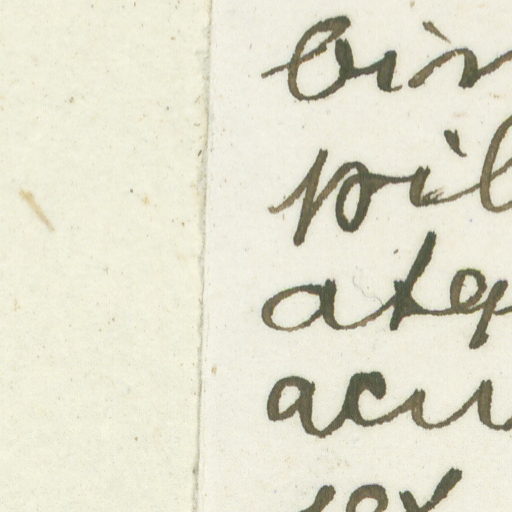 bin
pil
atq
acu
sex